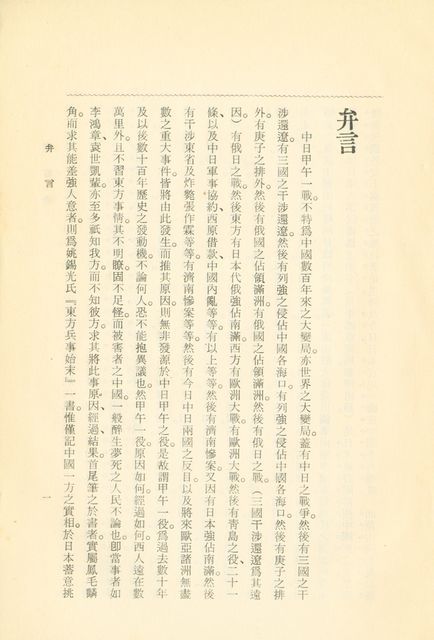 弁言
中日甲午一戰。不特爲中國數百年來之大變局。亦世界之大變局。蓋有中日之戰爭。然後有三國之干
涉還遼。有三國之干涉還遼。然後有列強之侵佔中國各海口。有列強之侵佔中國各海口。然後有庚子之排
外。有庚子之排外。然後有俄國之佔領滿洲。有俄國之佔領滿洲。然後有俄日之戰。(三國干涉還遼爲其遠
因)有俄日之戰。然後東方有日本代俄強佔南滿。西方有歐洲大戰。有歐洲大戰。然後有靑島之役、二十一
條、以及中日軍事協約、西原借款、中國內亂等等。有以上等等。然後有濟南慘案。又因有日本強佔南滿。然後
有干涉東省及炸斃張作霖等等。有濟南慘案等等。然後有今日中日兩國之反目。以及將來歐亞諸洲無盡
數之重大事件。皆將由此發生。而推其原因。則無非發源於中日甲午之役。是故謂甲午一役。爲過去數十年
及以後數十百年歷史之發動機。不論何人。恐不能抱異議也。然甲午一役。原因如何。經過如何。西人遠在數
萬里外。且不習東方事情。其不明瞭。固不足怪。而被害者之中國一般醉生夢死之人民不論也。卽當事者如
李鴻章、袁世凱輩。亦至多祇知我方。而不知彼方。求其將此事原因、經過、結果。首尾筆之於書者。實屬鳳毛麟
角。而求其能差強人意者。則爲姚錫光氏『東方兵事始末』一書。惟僅記中國一方之實相。於日本蓄意挑
弁言
一